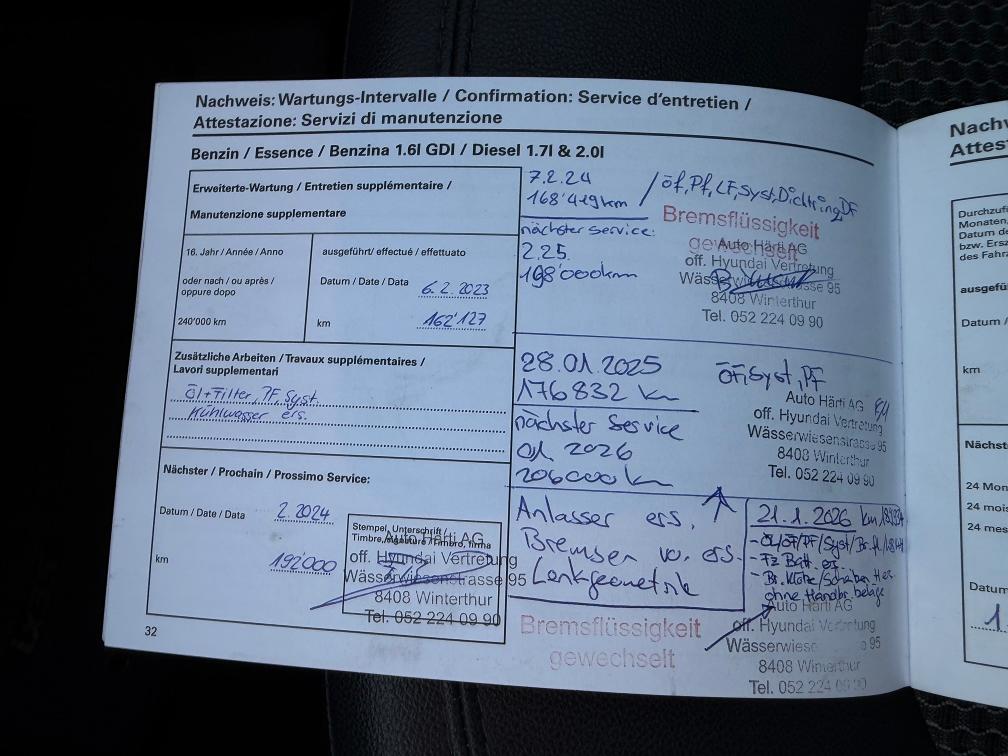 Nachweis: Wartungs-Intervalle / Confirmation: Service d'entretien /
Attestazione: Servizi di manutenzione
Benzin / Essence / Benzina 1.6l GDI / Diesel 1.7l & 2.0l
Erweiterte-Wartung / Entretien supplémentaire /
Manutenzione supplementare
16. Jahr / Année / Anno
oder nach / ou après /
oppure dopo
240'000 km
ausgeführt/ effectué / effettuato
Datum / Date / Data 6.2.2023
km 162'127
Zusätzliche Arbeiten / Travaux supplémentaires /
Lavori supplementari
Öl+Filter, PF, Syst.
Kühlwasser ers.
Nächster / Prochain / Prossimo Service:
Datum / Date / Data 2.2024
km 192'000
Stempel, Unterschrift /
Timbre, signature / Timbro, firma
Auto Härti AG
off. Hyundai Vertretung
Wässerwiesenstrasse 95
8408 Winterthur
Tel. 052 224 09 90
32
7.2.24
168'419km
/ öf, Pf, LF, Syst, Dichtring, DF
nächster Service:
2.25
198'000km
Bremsflüssigkeit
gewechselt
Auto Härti AG
off. Hyundai Vertretung
Wässerwiesenstrasse 95
8408 Winterthur
Tel. 052 224 09 90
28.01.2025
176832 km
ÖF, Syst, PF
nächster Service
01 2026
206000 km
Auto Härti AG
off. Hyundai Vertretung
Wässerwiesenstrasse 95
8408 Winterthur
Tel. 052 224 09 90
Anlasser ers.
Bremsen vo. ers.
Lenkgeometrie
Bremsflüssigkeit
gewechselt
21.1.2026 km
- Öl/ÖF/PF/Syst/Br.fl.
- Fz Batt. ers.
- Br. Klötze/Scheiben H ers.
ohne Handbr. beläge
Auto Härti AG
off. Hyundai Vertretung
Wässerwiese 95
8408 Winterthur
Tel. 052 224 09 90
Nachw
Attes
Durchzufü
Monaten,
Datum de
bzw. Ersa
des Fahr
ausgefü
Datum /
km
Nächst
24 Mon
24 mois
24 mes
Datum
1